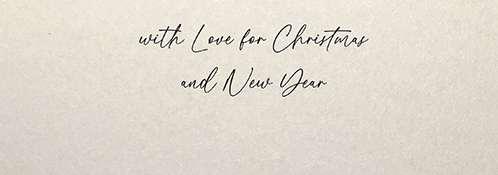 with Love for Christmas
and New Year